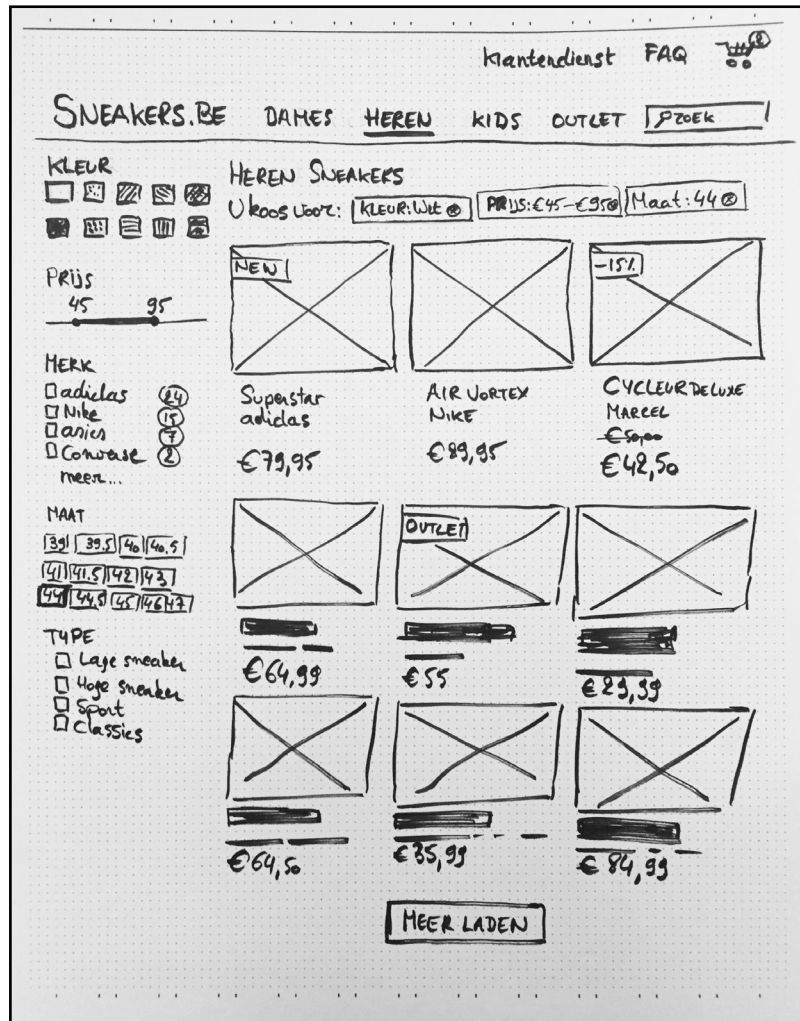 klantendienst FAQ
SNEAKERS.BE DAMES HEREN KIDS OUTLET ZOEK
KLEUR
Prijs
45 95
MERK
adidas 24
Nike 15
asics 7
Converse 2
meer...
MAAT
39 39.5 40 40.5
41 41.5 42 43
44 44.5 45 46 47
TYPE
Lage sneaker
Hoge sneaker
Sport
Classics
HEREN SNEAKERS
U koos voor: KLEUR: Wit PRIJS: €45-€95 Maat: 44
NEW
-15%
Superstar
adidas
€79,95
AIR VORTEX
NIKE
€89,95
CYCLEUR DE LUXE
MARCEL
€50,00
€42,50
OUTLET
€64,99
€55
€29,99
€64,50
€35,99
€84,99
MEER LADEN